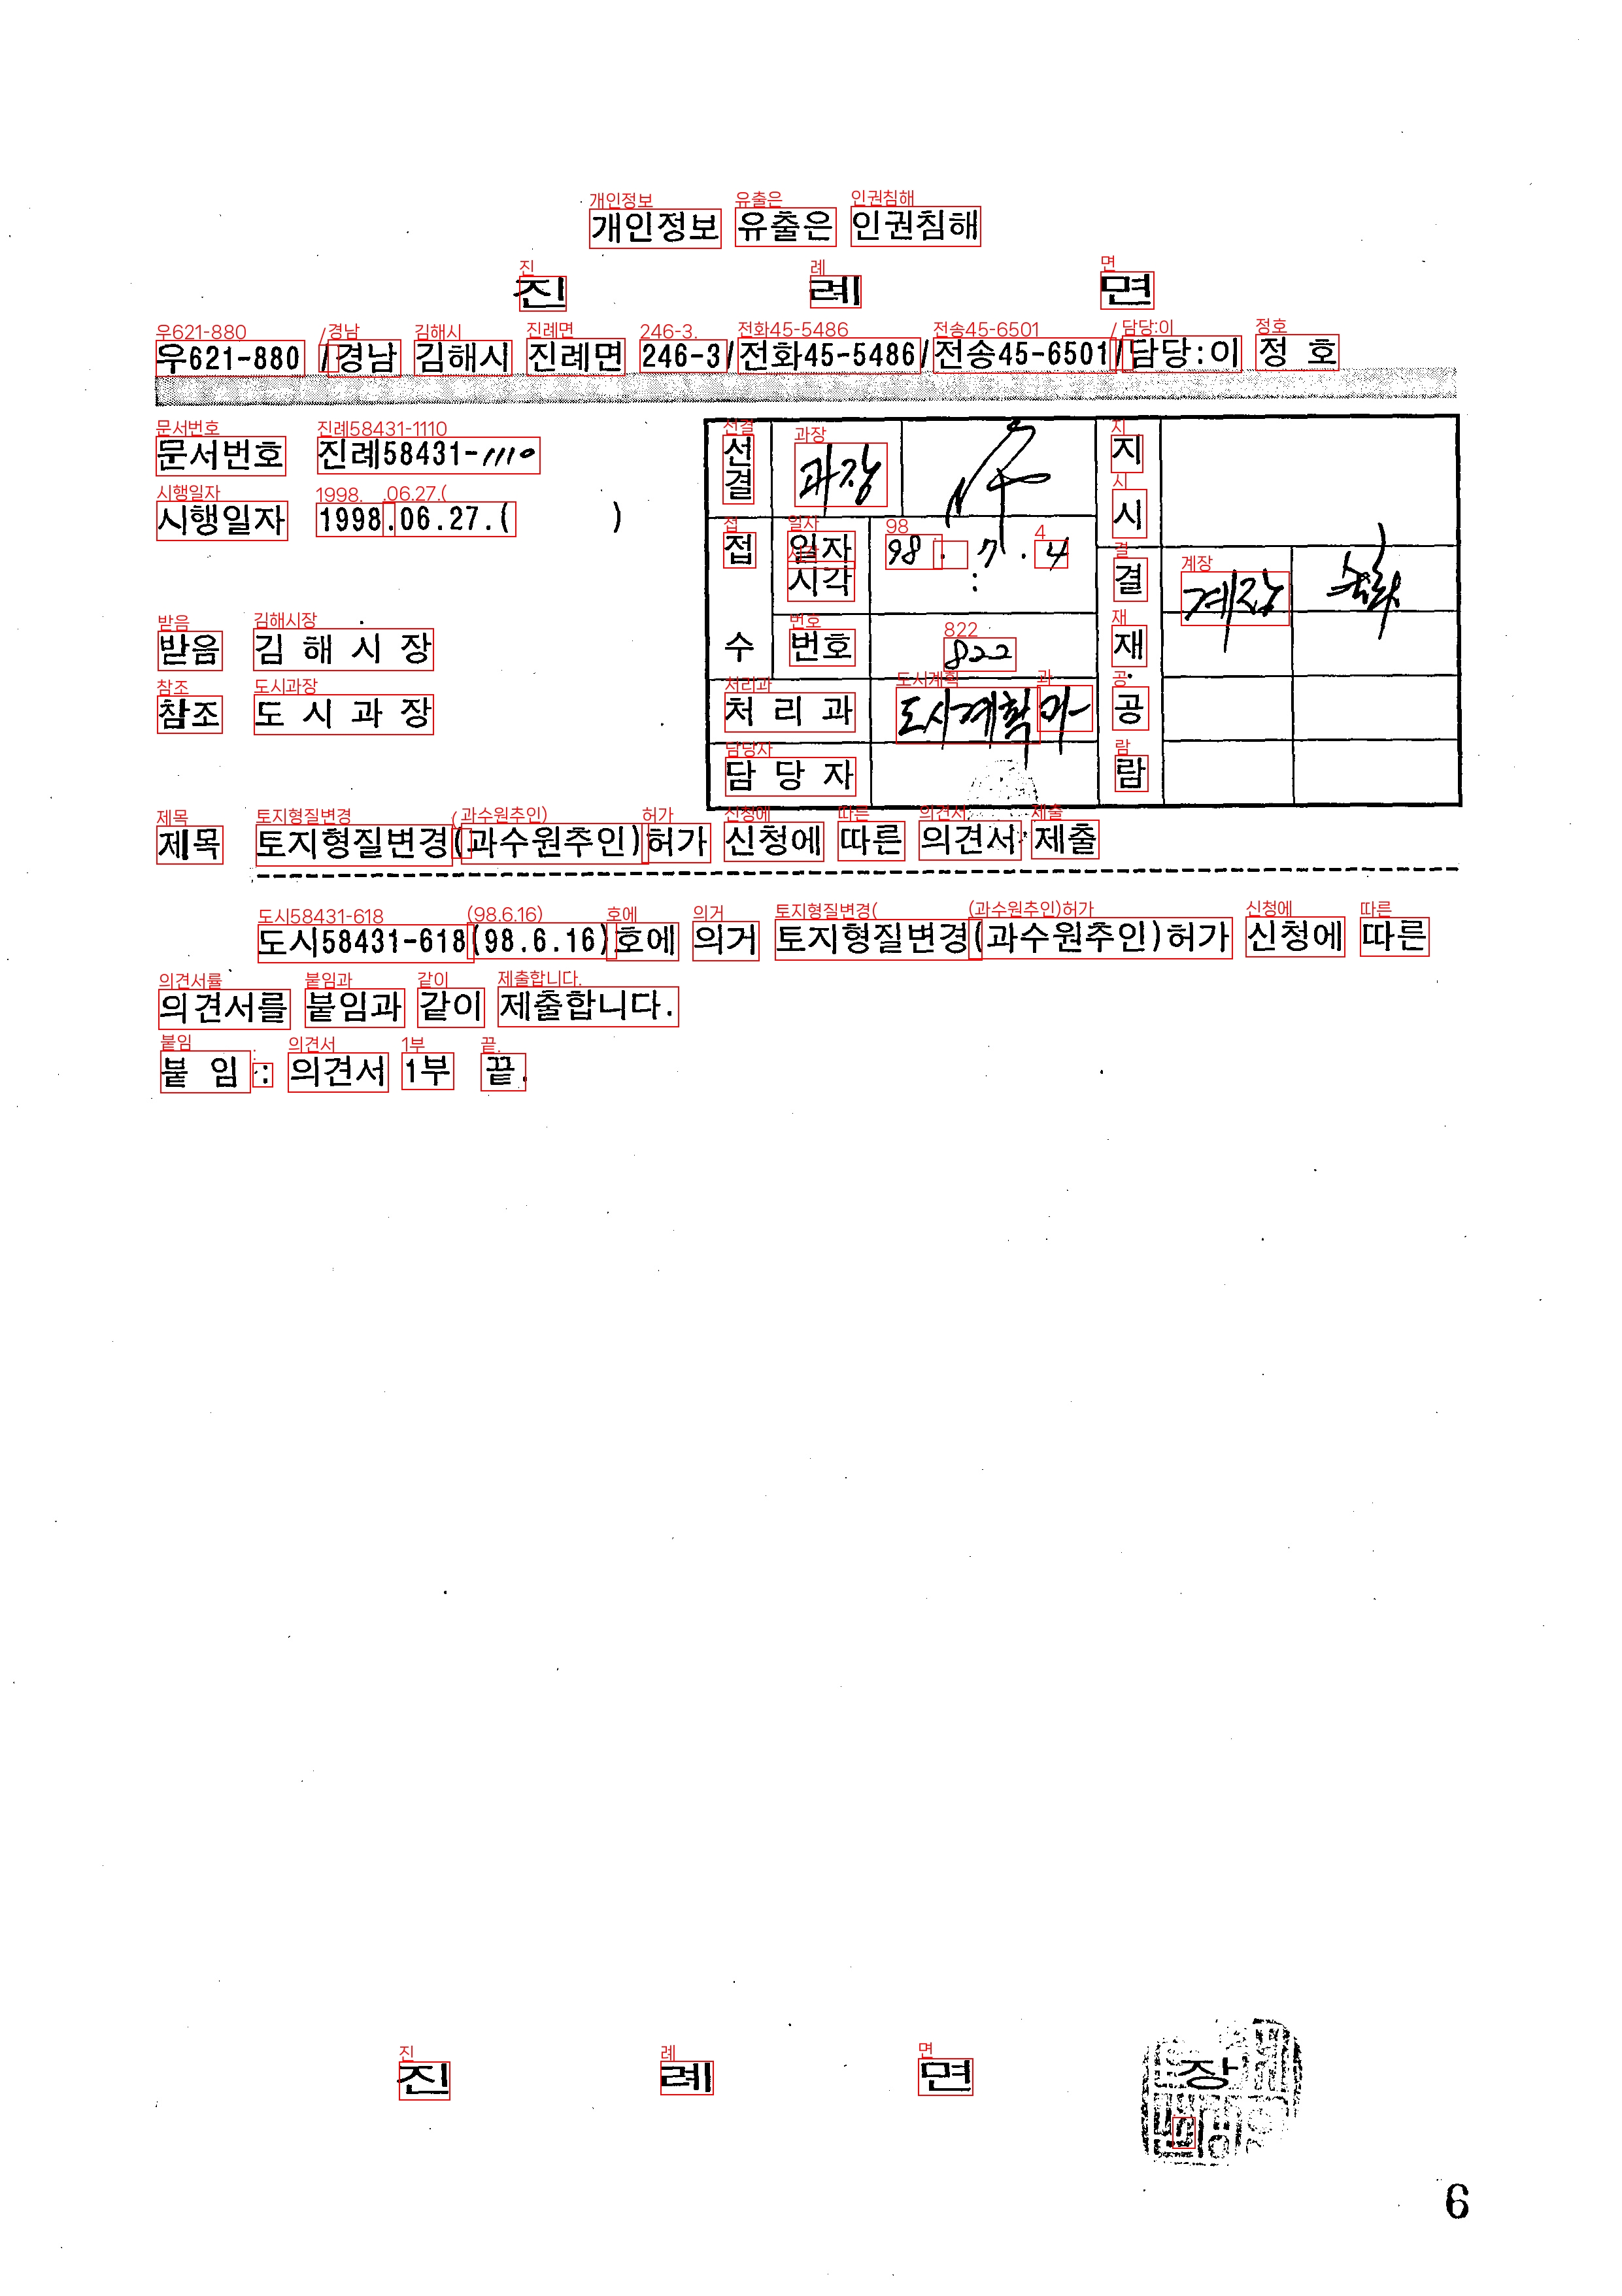 개인정보 유출은 인권침해
진 례 면
우621-880 /경남 김해시 진례면 246-3/전화45-5486/전송45-6501/담당:이 정 호
문서번호 진례58431-1110
시행일자 1998.06.27.( )
받음 김 해 시 장
참조 도 시 과 장
선결 과장 지시
접수 일자 시각 98 . 7 . 4 : 결재 계장
번호 822
처 리 과 도시계획과 공람
담 당 자
제목 토지형질변경(과수원추인)허가 신청에 따른 의견서 제출
도시58431-618(98.6.16)호에 의거 토지형질변경(과수원추인)허가 신청에 따른
의견서를 붙임과 같이 제출합니다.
붙 임 : 의견서 1부 끝.
진 례 면 장
6